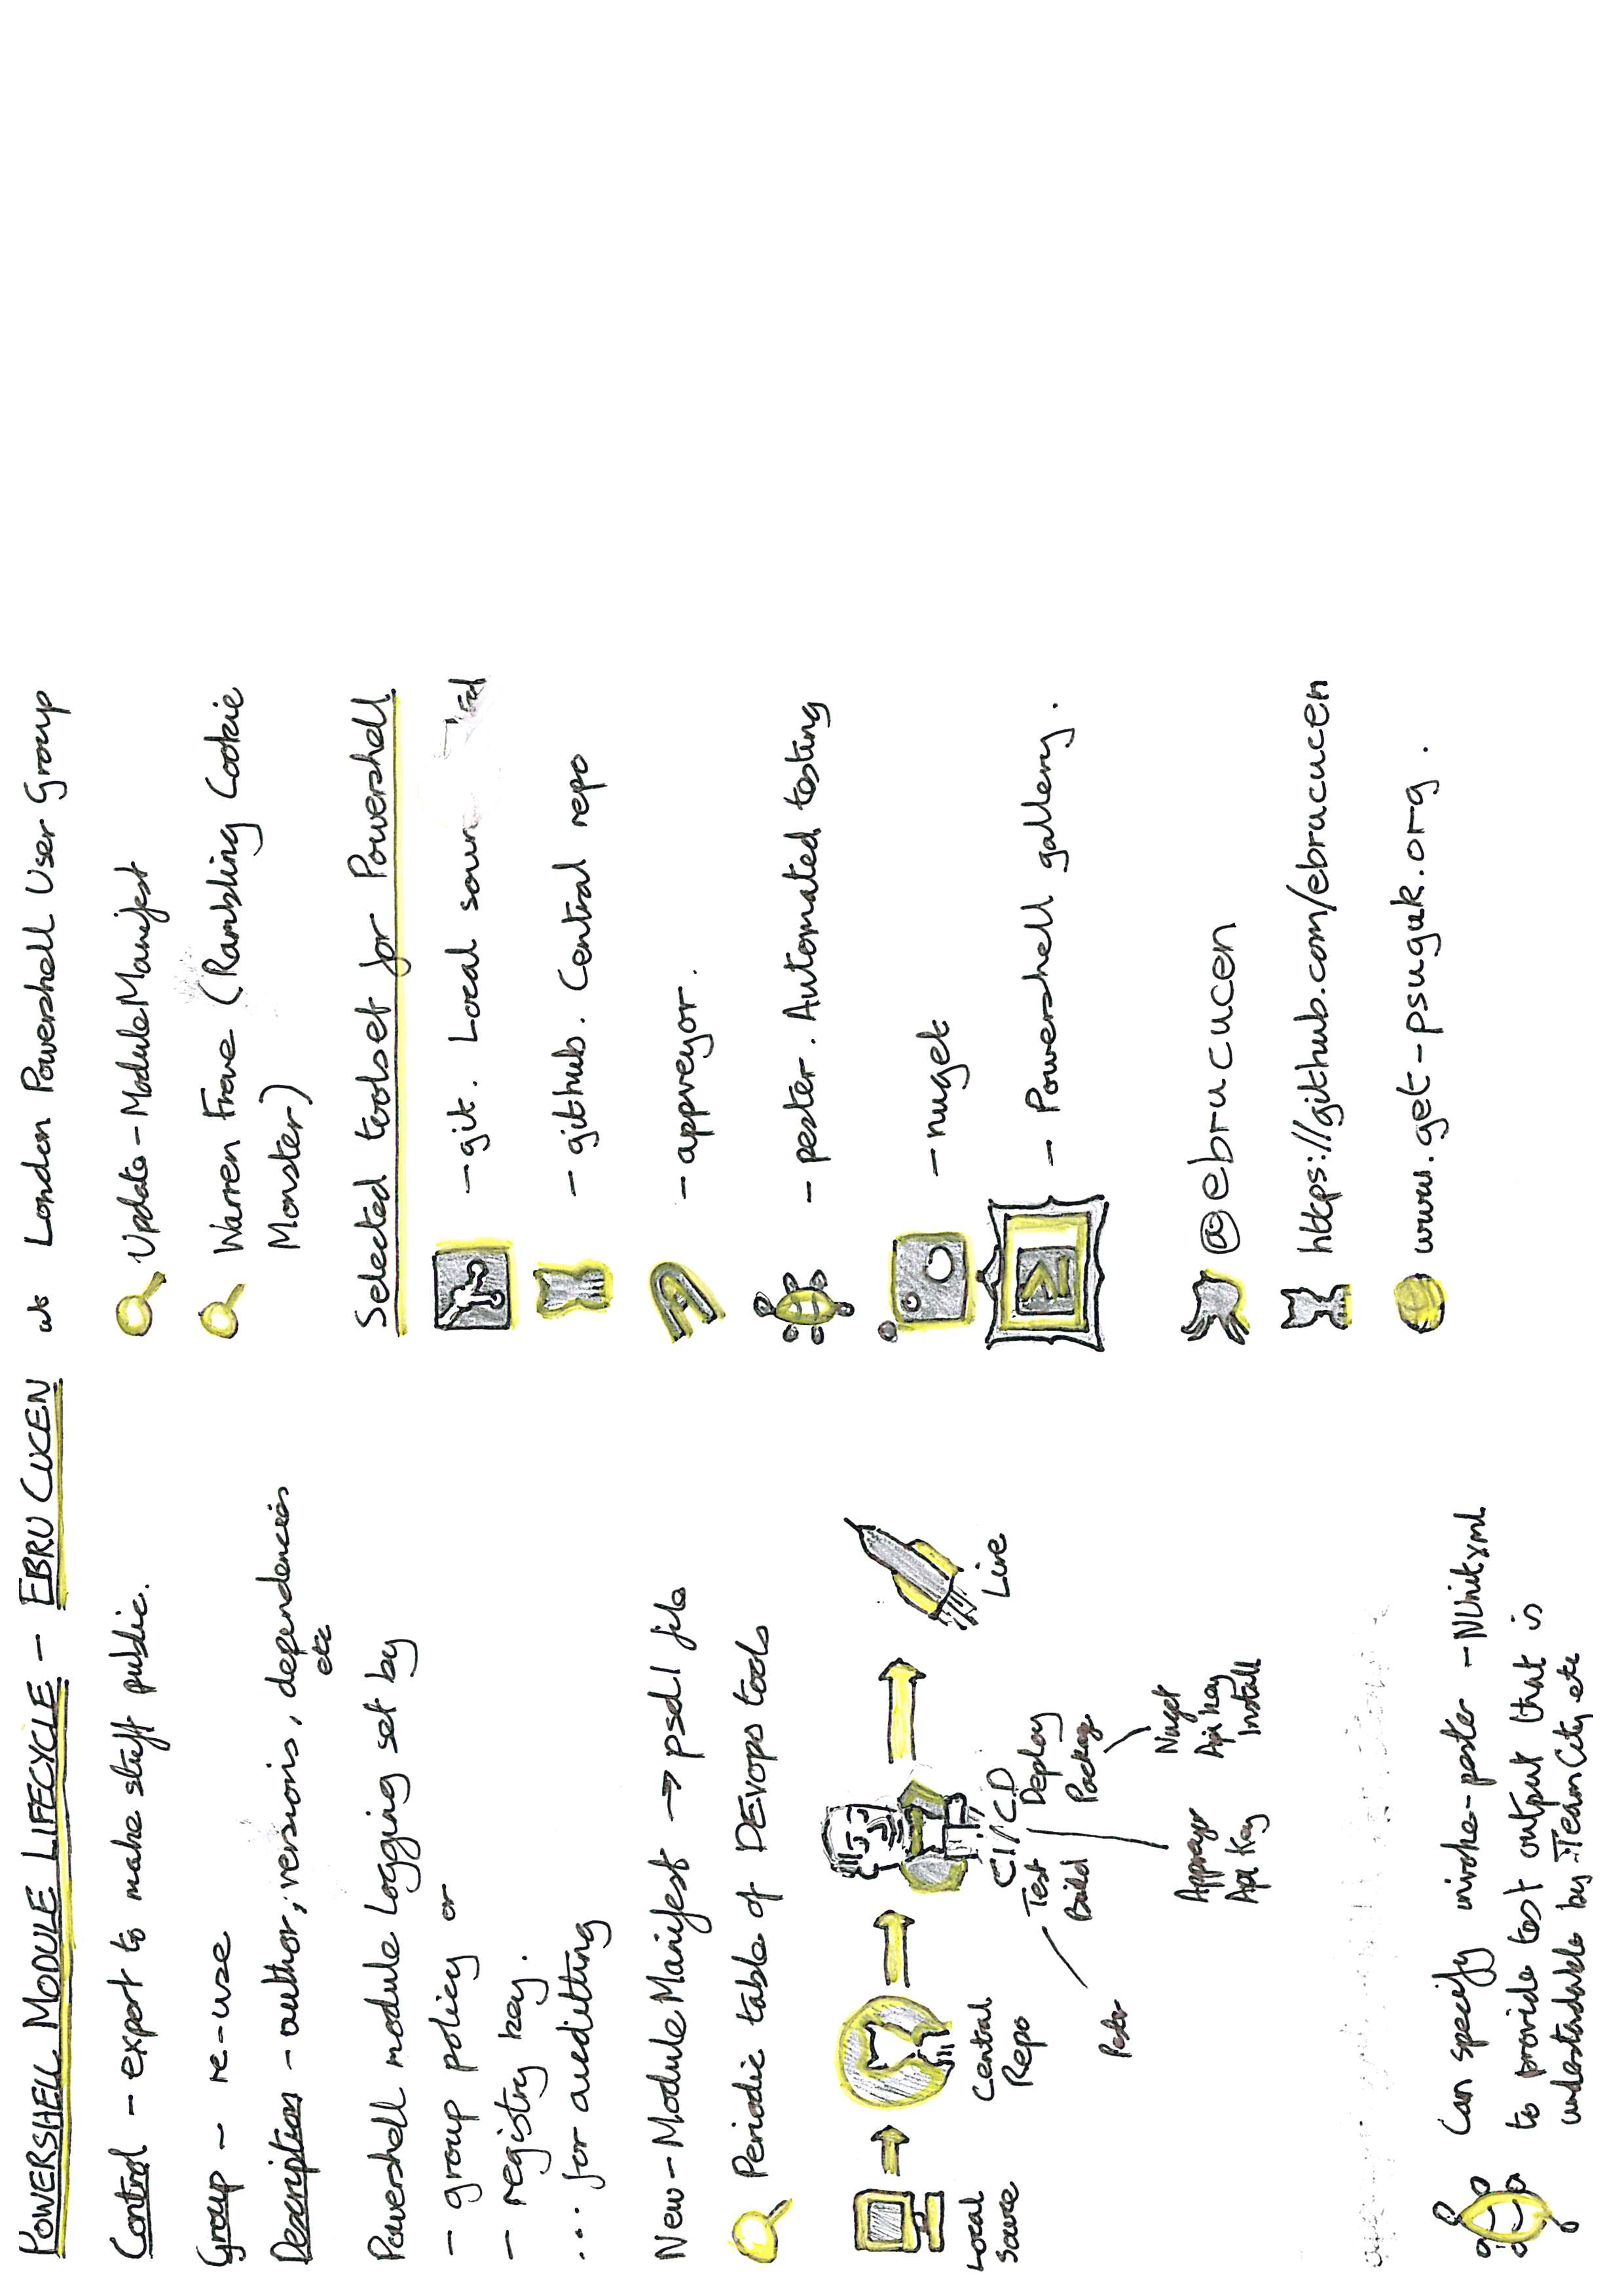 POWERSHELL MODULE LIFECYCLE - EBRU CUCEN at London Powershell User Group
Control - export to make stuff public.
Group - re-use
Description - author, versions, dependencies
etc
Powershell module logging set by
- group policy or
- registry key.
... for auditting
New-ModuleManifest → psd1 file
Periodic table of DEvops tools
Local
Source
Central
Repo
CI/CD
Test
Build
Deploy
Package
Live
Pester
Appveyor
Api Key
Nuget
Api key
Install
Can specify invoke-pester - NUnitxml
to provide test output that is
understadable by TeamCity etc
Update-ModuleManifest
Warren Frame (Rambling Cookie
Monster)
Selected toolset for Powershell
- git. Local
- github. Central repo
- appveyor.
- pester. Automated testing
- nuget
- Powershell gallery.
@ebrucucen
https://github.com/ebrucucen
www.get-psuguk.org.